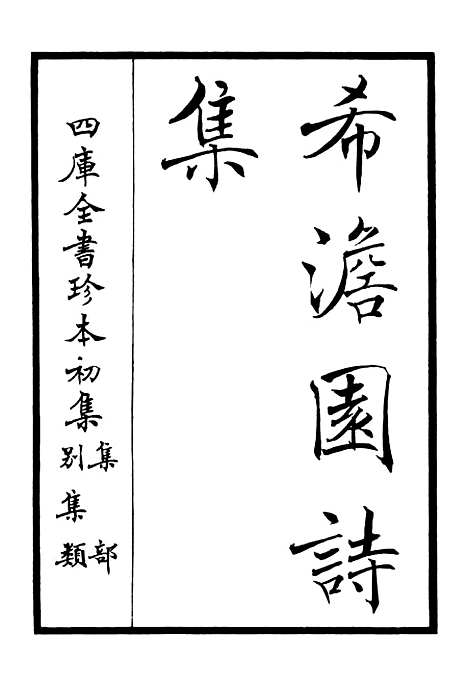 希澹園詩
集
四庫全書珍本初集
集部
別集類